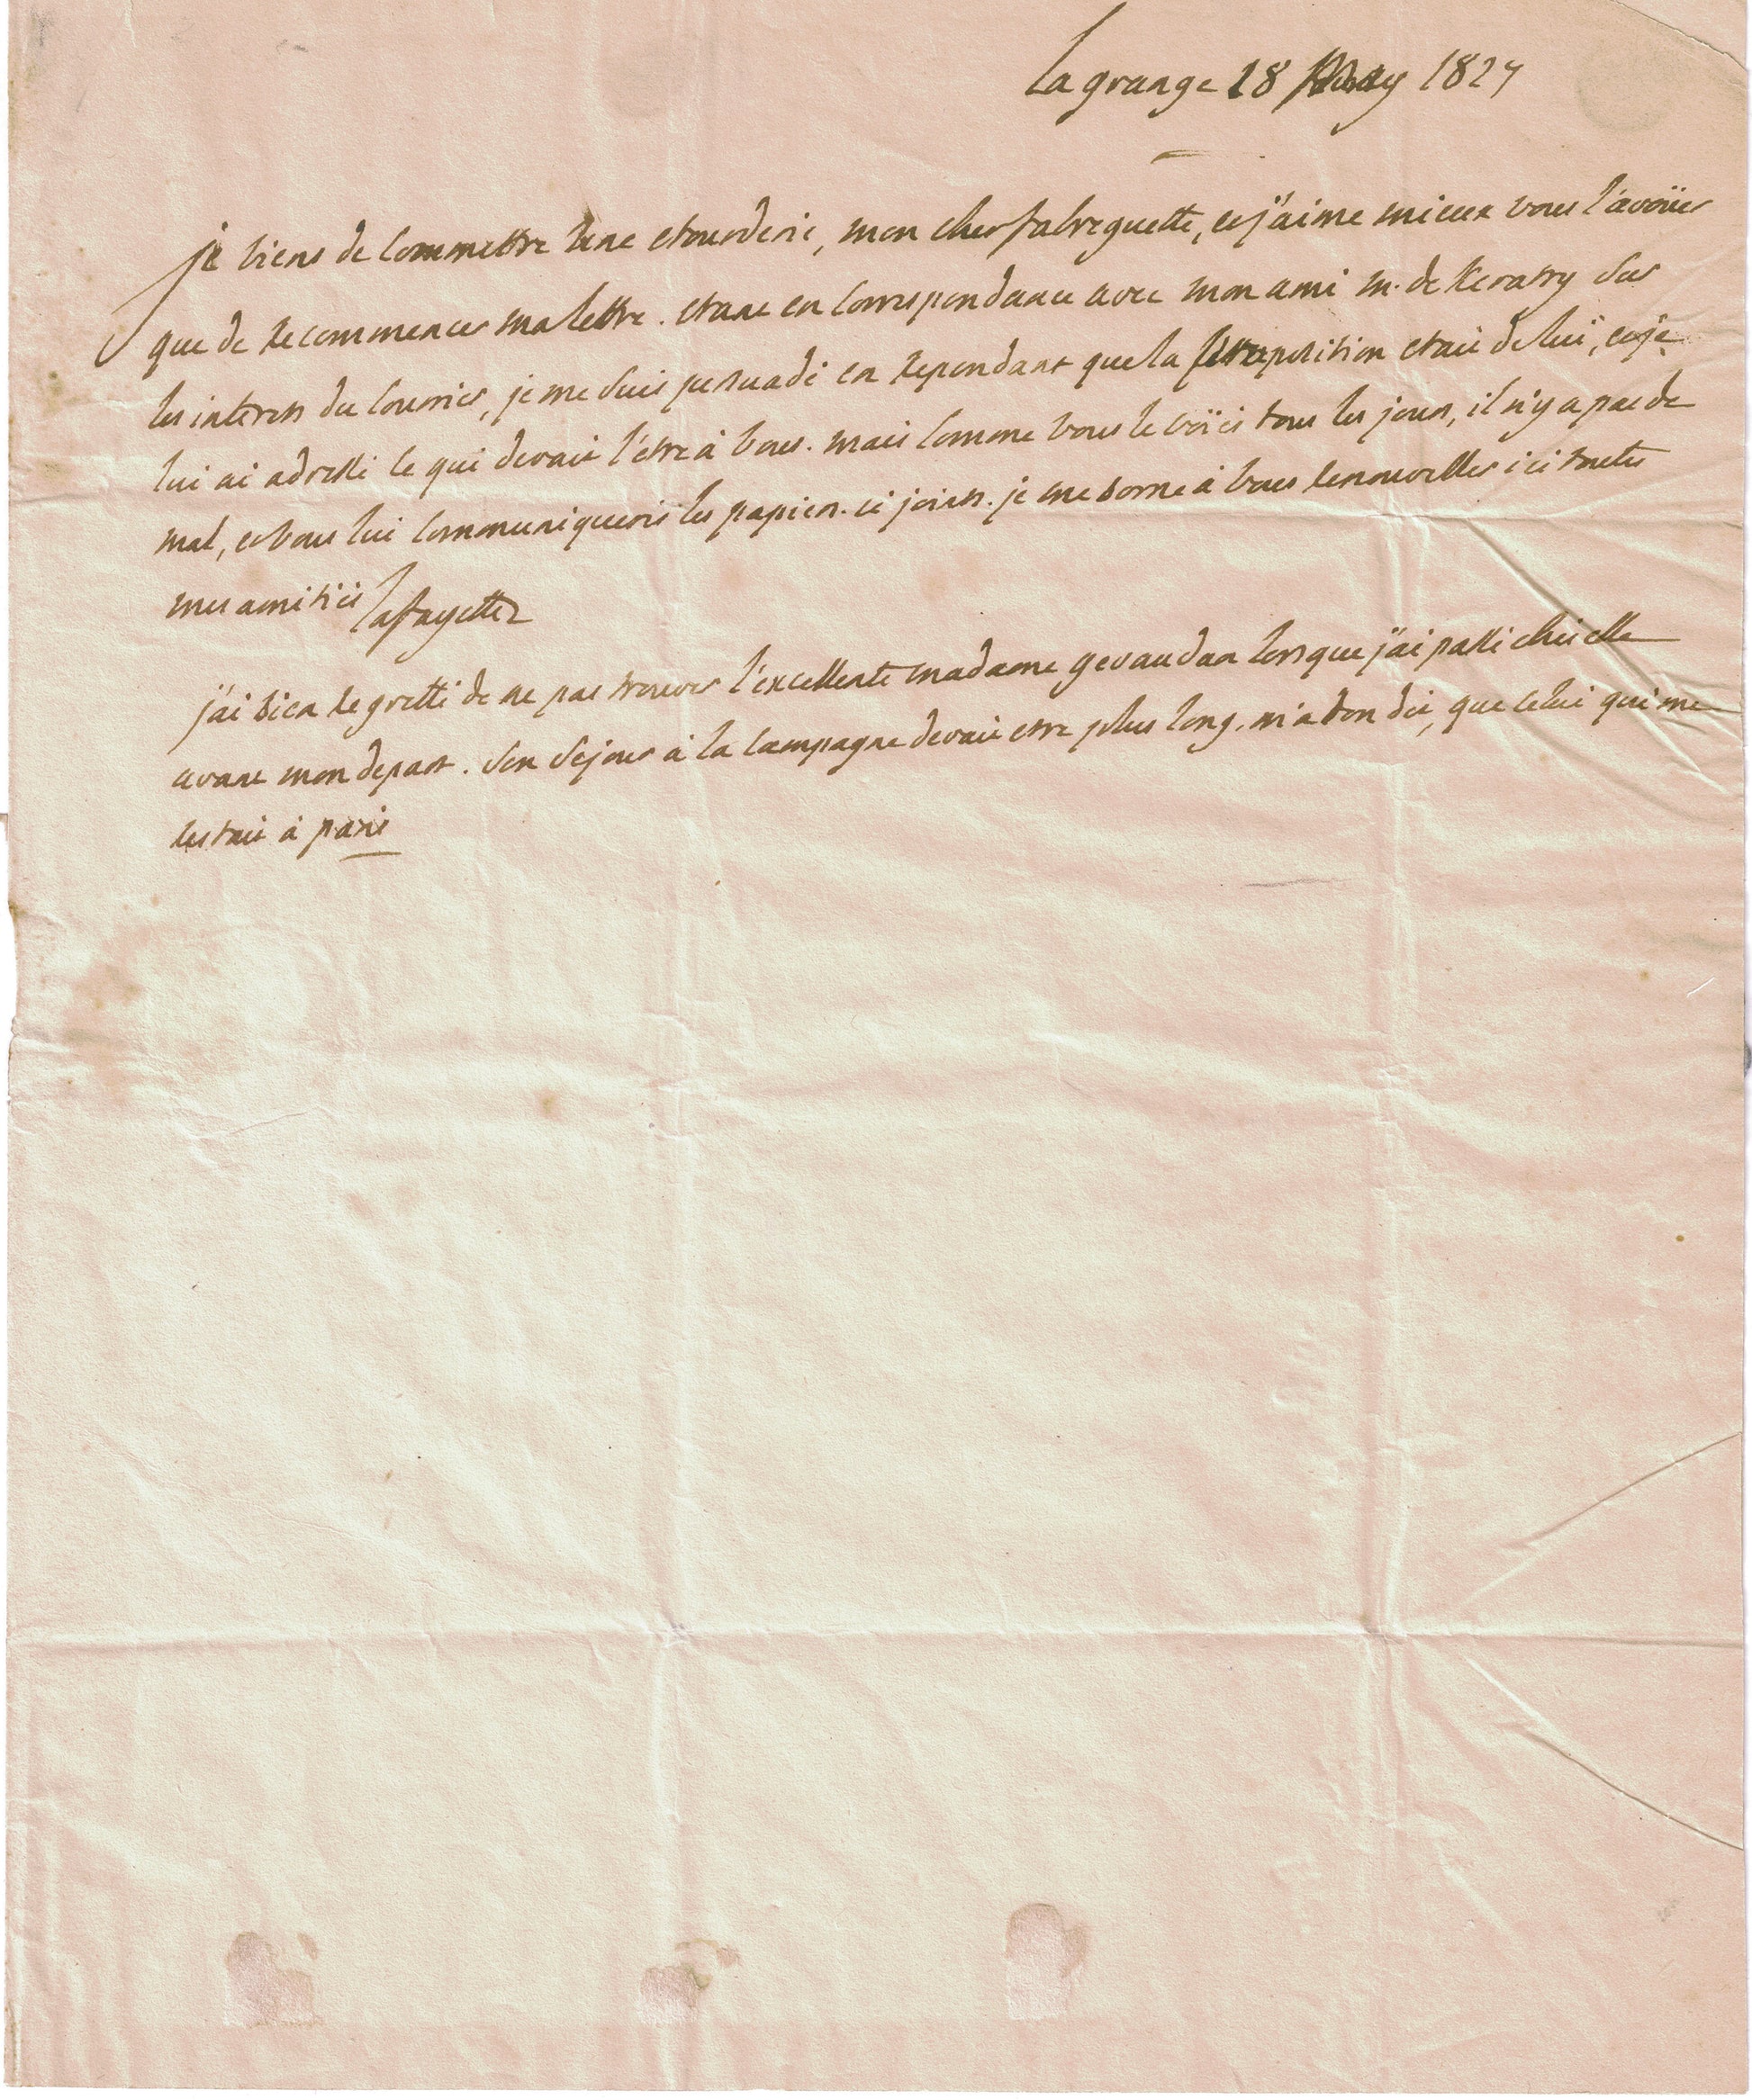 La grange 28 May 1827
je viens de commettre une etourderie, mon cher fabreguette, et j'aime mieux vous l'avoüer
que de recommencer ma lettre. etant en correspondance avec mon ami m. de Keratry sur
les interets du courrier, je me suis persuadé en repondant que la proposition etait de lui, et je
lui ai adressé ce qui devait l'être à vous. mais comme vous le voïés tous les jours, il n'y a pas de
mal, et vous lui communiquerés les papiers ci joints. je me borne à vous renouveller ici toutes
mes amitiés Lafayette
j'ai bien regretté de ne pas trouver l'excellente madame gevaudan lorsque j'ai passé chés elle
avant mon depart. son sejour à la campagne devait etre plus long, m'a t'on dit, que celui qui me
restait à paris